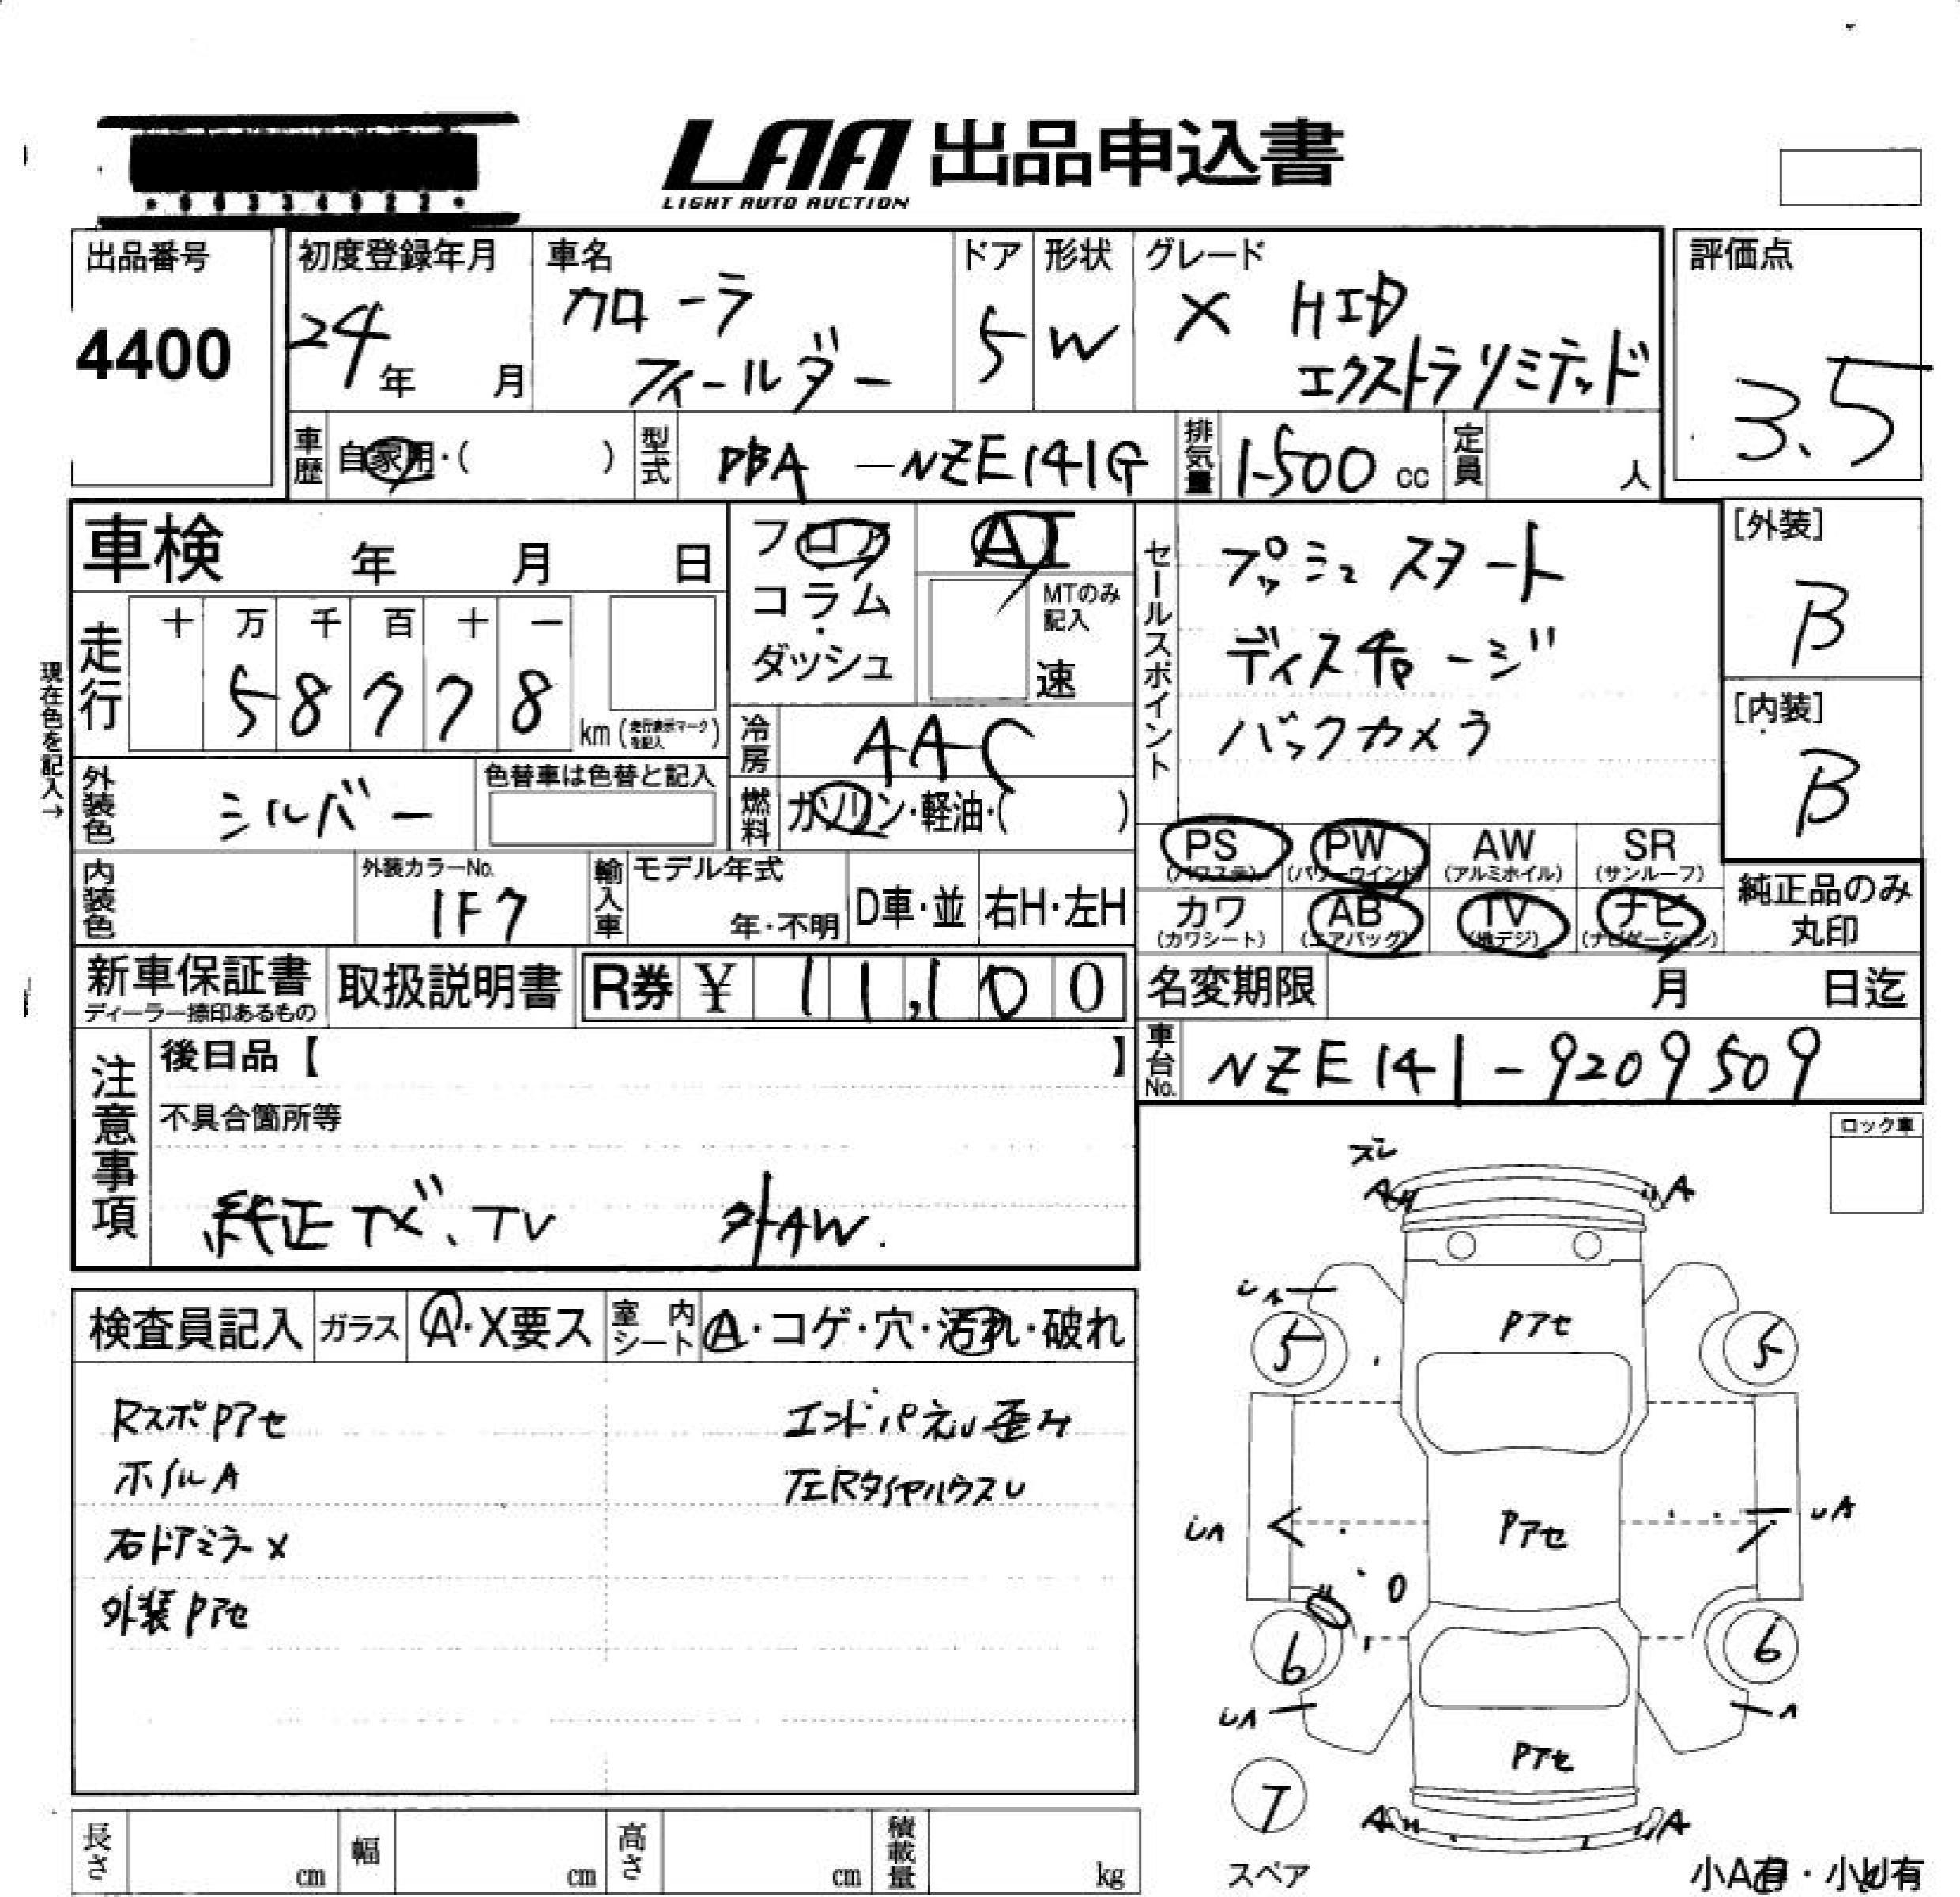 LAA 出品申込書
LIGHT AUTO AUCTION
出品番号
4400
初度登録年月
24年 月
車名
カローラ
フィールダー
ドア
5
形状
W
グレード
X HID
エクストラリミテッド
評価点
3.5
車歴 自家用・( )
型式 DBA-NZE141G
排気量 1500 cc
定員 人
車検 年 月 日
フロア
コラム・
ダッシュ
AT
MTのみ
記入
速
現在色を記入→
走行
十 万 千 百 十 一
5 8 7 7 8
km (走行表示マークを記入)
冷房 AAC
外装色 シルバー
色替車は色替と記入
燃料 ガソリン・軽油・( )
内装色
外装カラーNo.
1F7
輸入車
モデル年式
年・不明
D車・並
右H・左H
新車保証書
ディーラー捺印あるもの
取扱説明書
R券 ¥ 11,100
セールスポイント
プッシュスタート
ディスチャージ
バックカメラ
[外装]
B
[内装]
B
PS
(パワステ)
PW
(パワーウインド)
AW
(アルミホイル)
SR
(サンルーフ)
カワ
(カワシート)
AB
(エアバッグ)
TV
(地デジ)
ナビ
(ナビゲーション)
純正品のみ
丸印
名変期限 月 日迄
車台No. NZE141-9209509
注意事項
後日品【 】
不具合箇所等
純正ナビ、TV 外AW.
ロック車
検査員記入
ガラス
A・X要ス
室内シート
A・コゲ・穴・汚れ・破れ
RスポPアセ
ホイルA
右ドアミラーX
外装Pアセ
エンドパネル歪み
左RタイヤハウスU
ズレ
A
A
UA
Pアセ
5
5
UA
Pアセ
UA
0
6
6
UA
Pアセ
A
7
A
A
スペア
小A有・小U有
長さ cm
幅 cm
高さ cm
積載量 kg